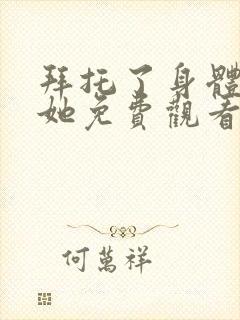 拜托了身體
她免費觀看
何萬祥